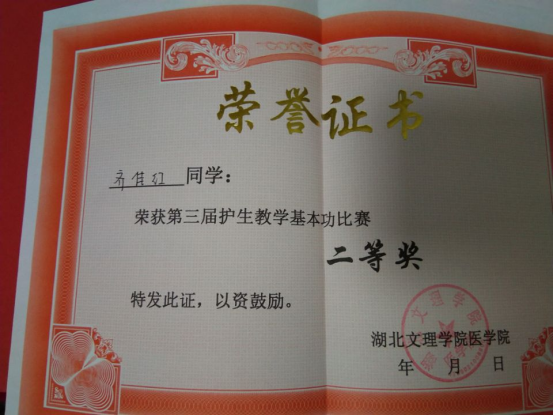 荣誉证书
齐佳红 同学:
荣获第三届护生教学基本功比赛
二等奖
特发此证，以资鼓励。
湖北文理学院医学院
年 月 日